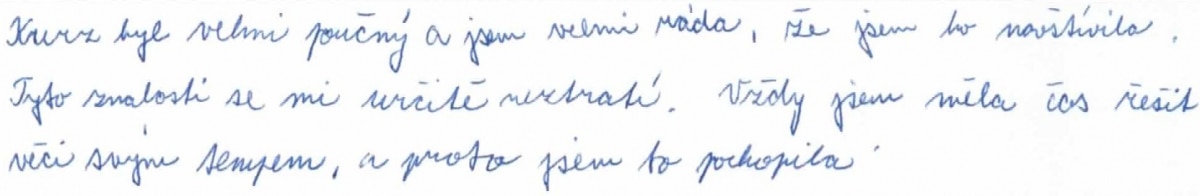 Kurz byl velmi poučný a jsem velmi ráda, že jsem to navštívila.
Tyto znalosti se mi určitě neztratí. Vždy jsem měla čas řešit
věci svým tempem, a proto jsem to pochopila.